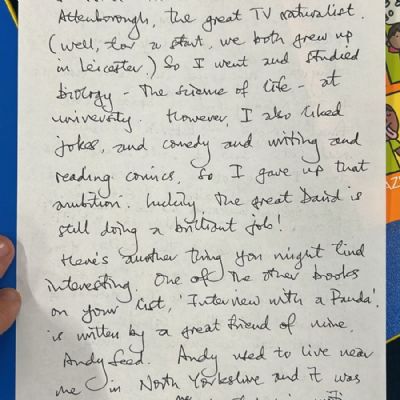 Attenborough, the great TV naturalist.
(Well, for a start, we both grew up
in Leicester.) So I went and studied
biology - the science of life - at
university. However, I also liked
jokes, and comedy and writing and
reading comics, so I gave up that
ambition. Luckily the great David is
still doing a brilliant job!
Here's another thing you might find
interesting. One of the other books
on your list, 'Interview with a Panda'.
is written by a great friend of mine.
Andy Seed. Andy used to live near
me in North Yorkshire and it was